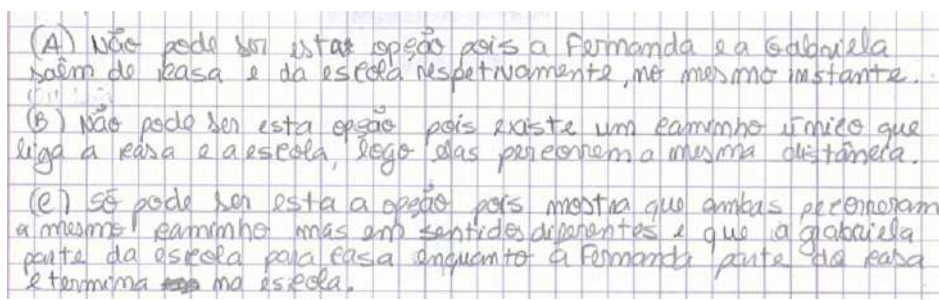 (A) Não pode ser esta opção pois a Fernanda e a Gabriela
saêm de casa e da escola respetivamente, no mesmo instante.
(B) Não pode ser esta opção pois existe um caminho único que
liga a casa e a escola, logo elas percorrem a mesma distância.
(C) Só pode ser esta a opção pois mostra que ambas percorreram
o mesmo caminho mas em sentidos diferentes e que a gabriela
parte da escola para casa enquanto a Fernanda parte da casa
e termina na escola.